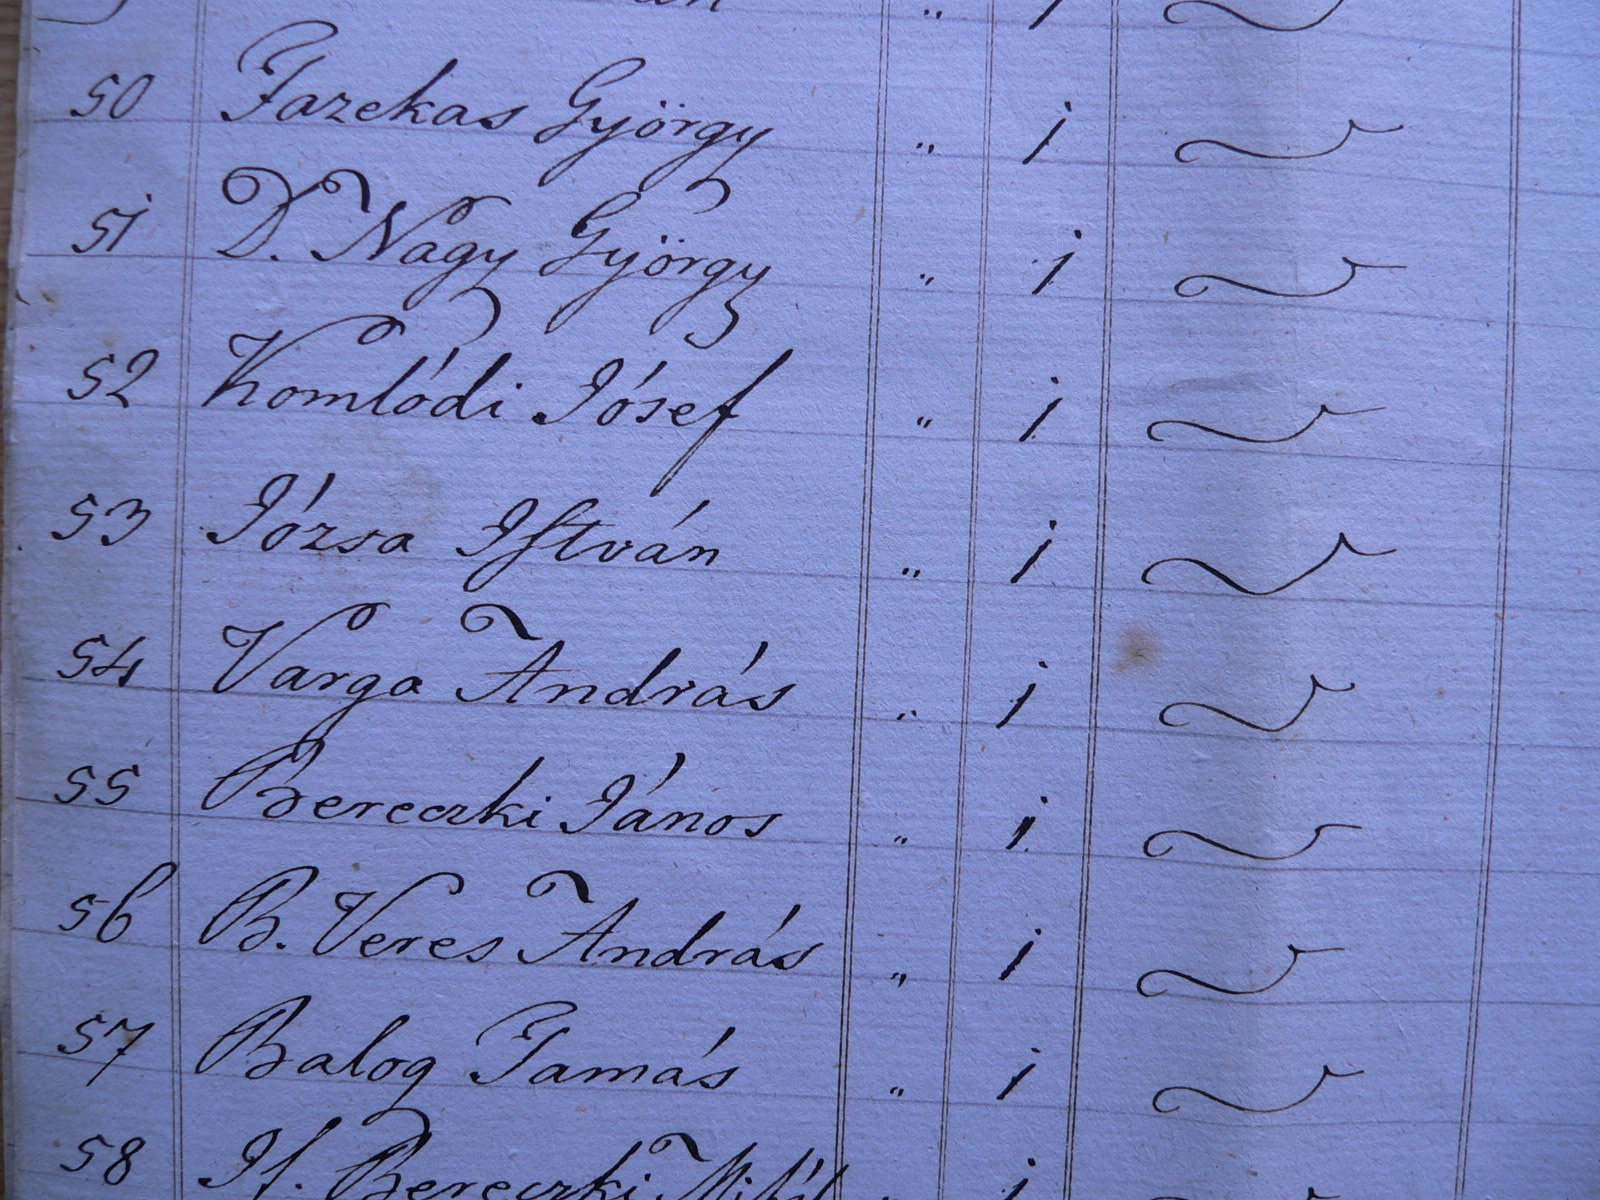 50 Fazekas György " 1
51 D. Nagy György " 1
52 Komlódi Jósef " 1
53 Józsa István " 1
54 Varga András " 1
55 Bereczki János " 1
56 B. Veres András " 1
57 Balog Tamás " 1
58 If. Bereczki Mihál " 1